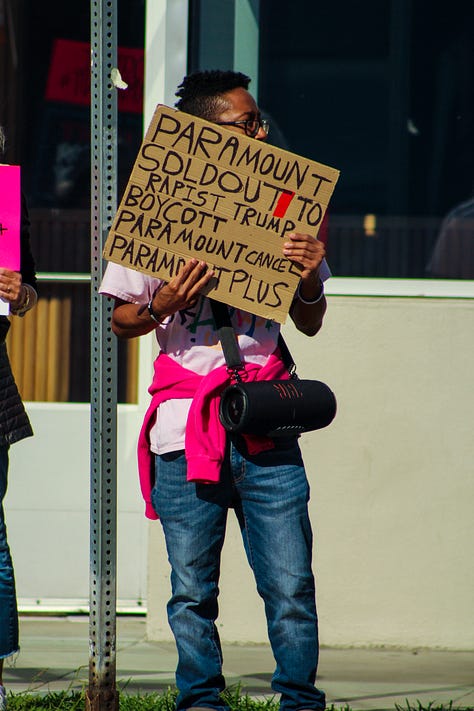 PARAMOUNT
SOLDOUT TO
RAPIST TRUMP
BOYCOTT
PARAMOUNT CANCEL
PARAMOUNT PLUS